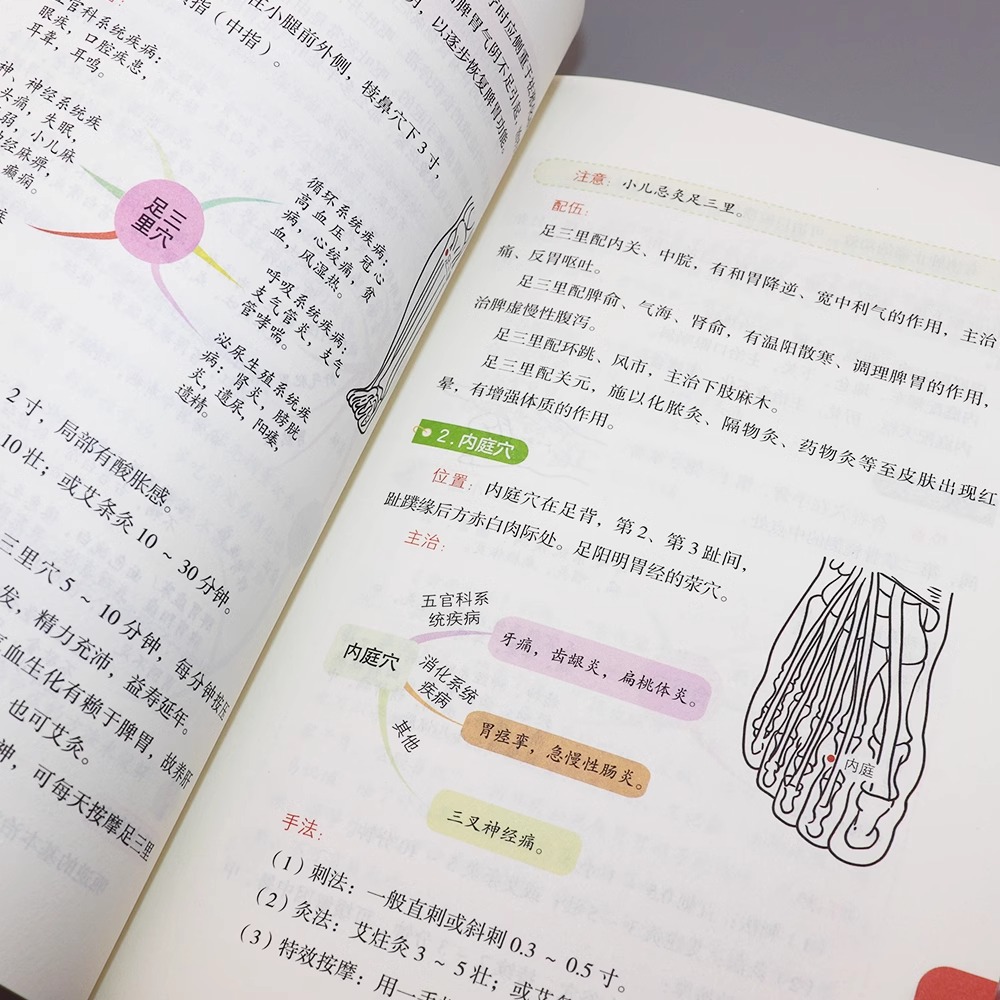 官科系统疾病：
眼疾，口腔疾患，
耳聋，耳鸣。
神、神经系统疾
头痛，失眠，
弱，小儿麻
经麻痹，
癫痫。
疾
指（中指）。
在小腿前外侧，犊鼻穴下 3 寸，
足三
里穴
循环系统疾病：
高血压，冠心
病，心绞痛，贫
血，风湿热。
呼吸系统疾病：
支气管炎，支气
管哮喘。
泌尿生殖系统疾
病：肾炎，膀胱
炎，遗尿，阳痿，
遗精。
2 寸，局部有酸胀感。
10 壮；或艾条灸 10 ~ 30 分钟。
三里穴 5 ~ 10 分钟，每分钟按压
发，精力充沛，益寿延年。
血生化有赖于脾胃，故养肝
也可艾灸。
神，可每天按摩足三里
注意：小儿忌灸足三里。
配伍：
足三里配内关、中脘，有和胃降逆、宽中利气的作用，主治
痛、反胃呕吐。
足三里配脾俞、气海、肾俞，有温阳散寒、调理脾胃的作用，
治脾虚慢性腹泻。
足三里配环跳、风市，主治下肢麻木。
足三里配关元，施以化脓灸、隔物灸、药物灸等至皮肤出现红
晕，有增强体质的作用。
2. 内庭穴
位置：内庭穴在足背，第 2、第 3 趾间，
趾蹼缘后方赤白肉际处。足阳明胃经的荥穴。
主治：
内庭穴
五官科系
统疾病
牙痛，齿龈炎，扁桃体炎。
消化系统
疾病
胃痉挛，急慢性肠炎。
其他
三叉神经痛。
内庭
手法：
（1）刺法：一般直刺或斜刺 0.3 ~ 0.5 寸。
（2）灸法：艾炷灸 3 ~ 5 壮；或艾
（3）特效按摩：用一手